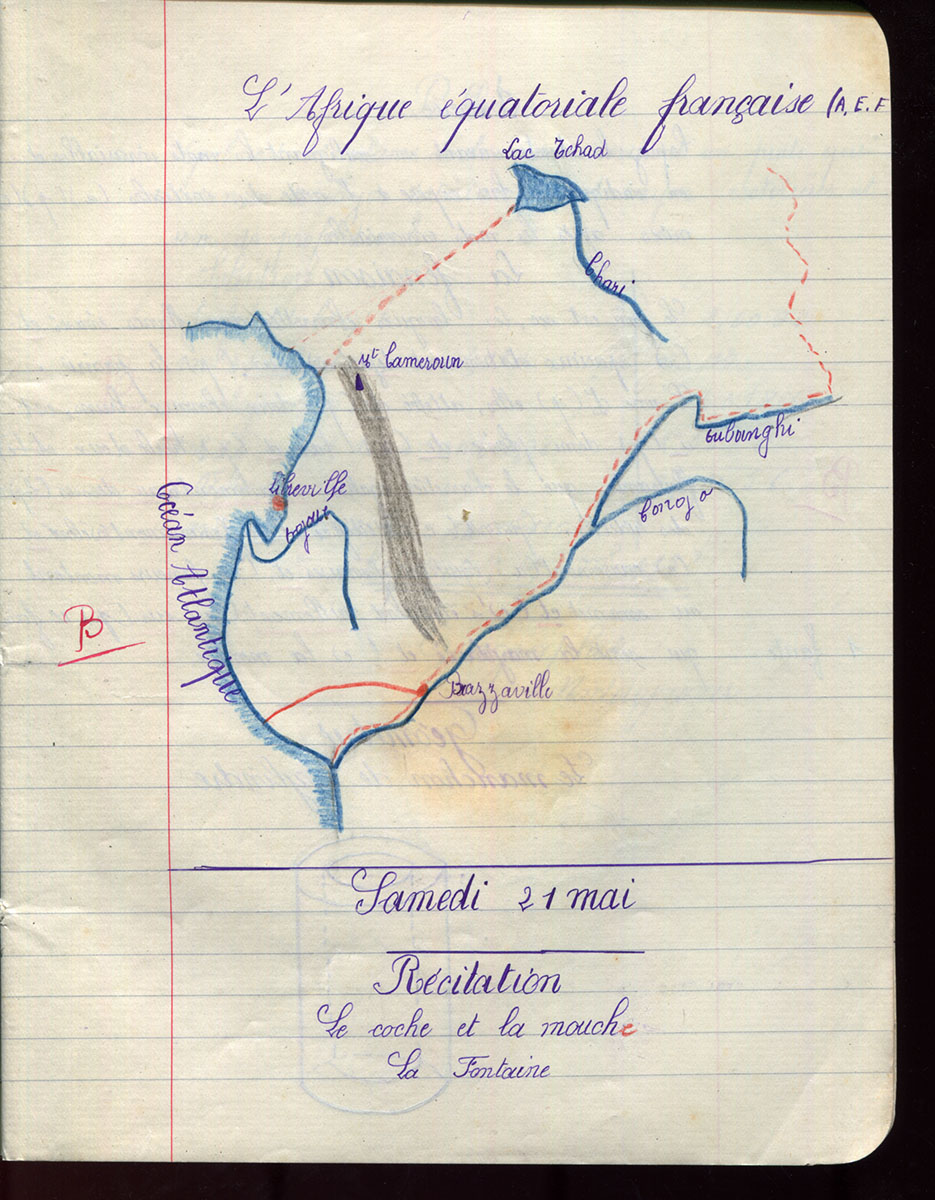 L'Afrique équatoriale française (A.E.F
Lac Tchad
Chari
Mt Cameroun
Oubanghi
Libreville
Ogoué
Congo
Océan Atlantique
B
Brazzaville
Samedi 21 mai
Récitation
Le coche et la mouche
La Fontaine